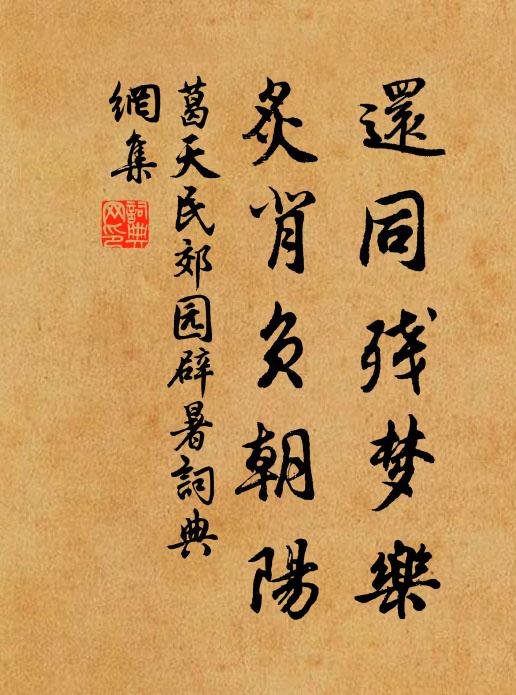 還同残梦樂
炙背负朝陽
葛天民郊园辟暑詞典
網集
詞典
网印